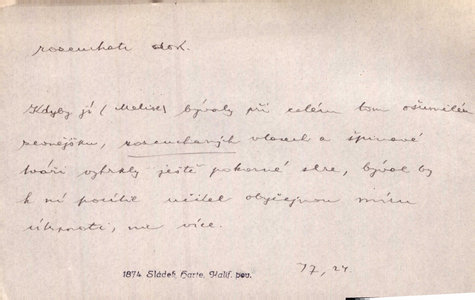 rozcuchati dok.
Kdyby jí (Melise) bývaly při celém tom ošumělém
zevnějšku, rozcuchaných vlasech a špinavé
tváři vyhrkly ještě pokorné slze, býval by
k ní pocítil učitel obyčejnou míru
útrpnosti, ne více.
1874. Sládek, Harte, Kalif. pov.
17, 24